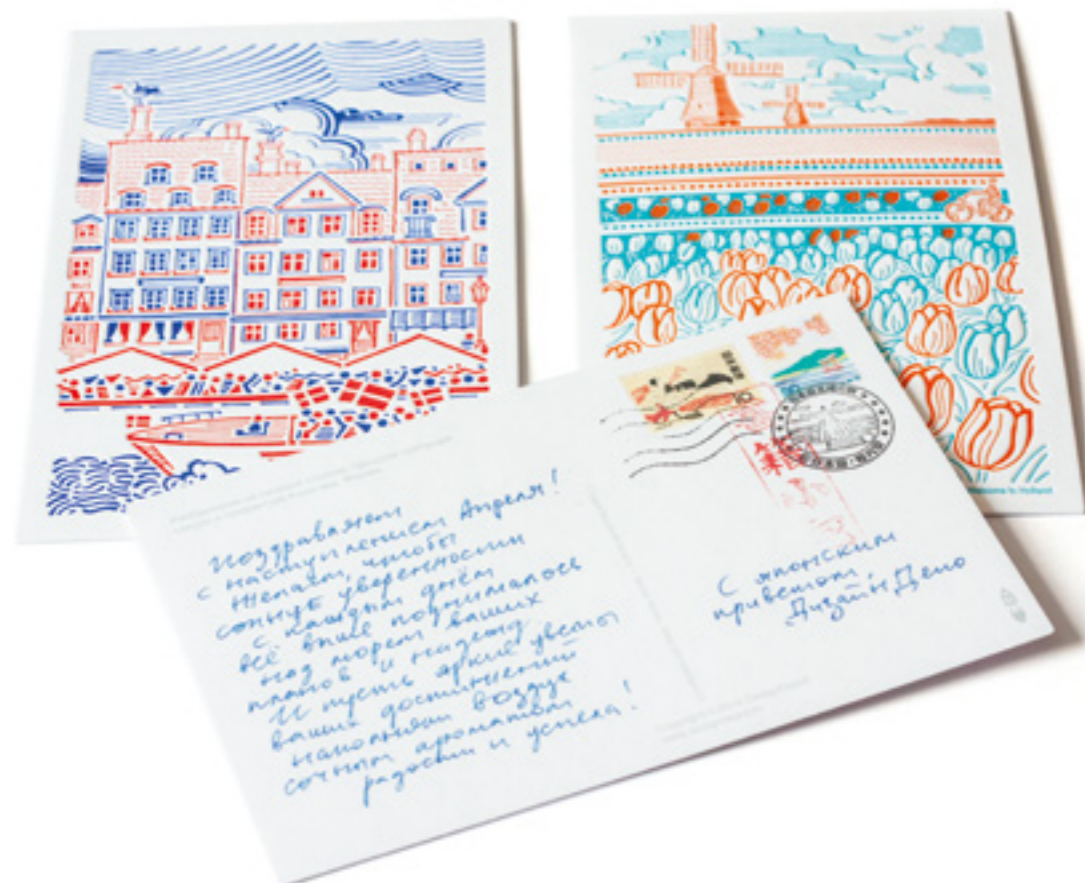 Поздравляем
с наступлением Апреля!
Желаем, чтобы
солнце уверенности
с каждым днём
всё выше поднималось
над морем ваших
планов и надежд.
И пусть яркие цветы
ваших достижений
наполняют воздух
сочным ароматом
радости и успеха!
С японским
приветом,
Дизайн Депо
to Holland